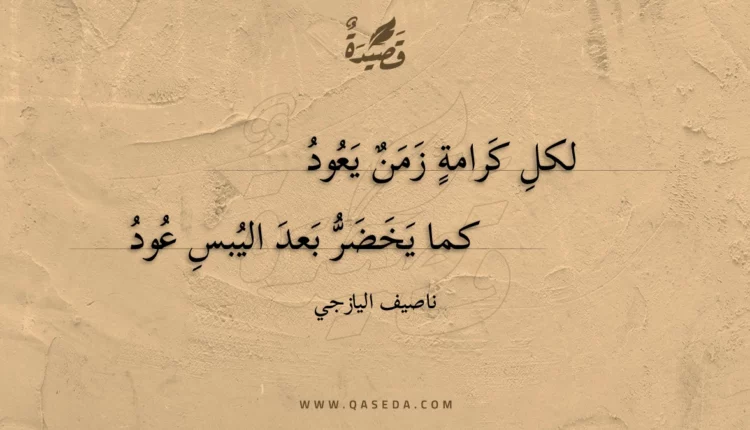 قَصِيدَةٌ
لكلِ كَرامةٍ زَمَنٌ يَعُودُ
كما يَخَضَرُّ بَعدَ اليُبسِ عُودُ
ناصيف اليازجي
WWW.QASEDA.COM